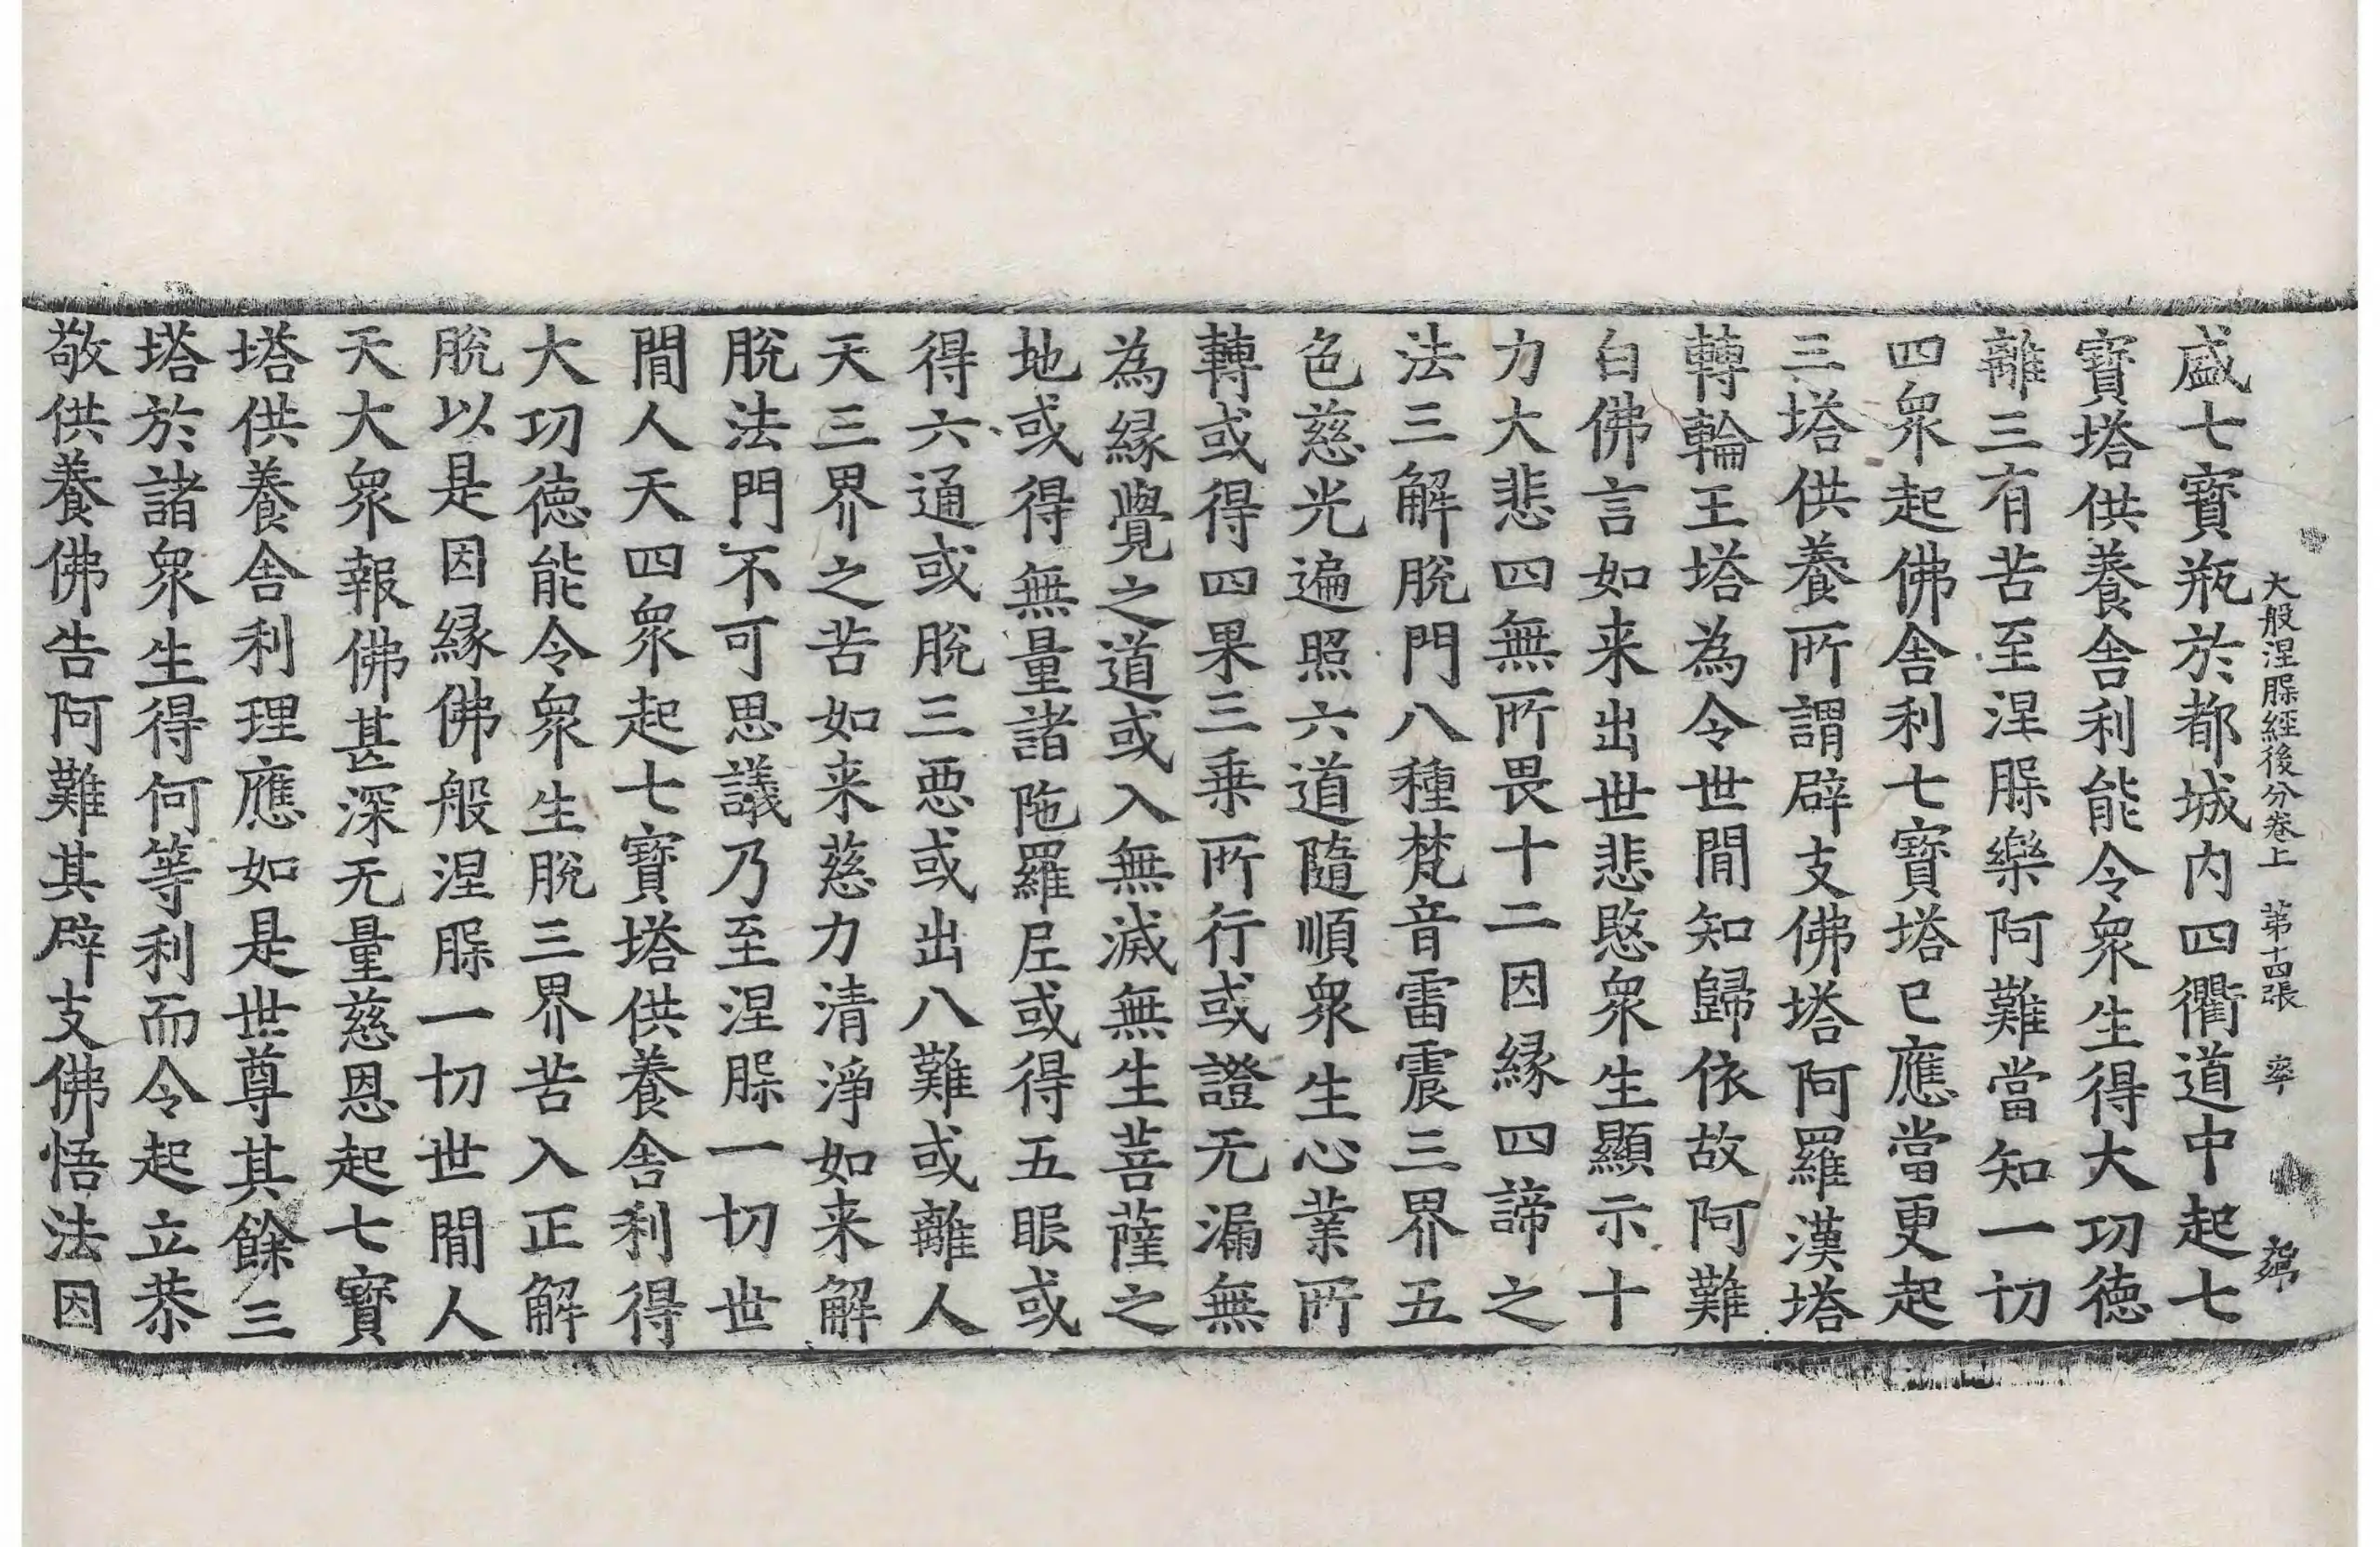 大般涅槃經後分卷上 第十四張 率
盛七寶瓶於都城内四衢道中起七
寶塔供養舎利能令衆生得大功徳
離三有苦至涅槃樂阿難當知一切
四衆起佛舎利七寶塔已應當更起
三塔供養所謂辟支佛塔阿羅漢塔
轉輪王塔為令世閒知歸依故阿難
白佛言如来出世悲愍衆生顯示十
力大悲四無所畏十二因縁四諦之
法三解脫門八種梵音雷震三界五
色慈光遍照六道隨順衆生心業所
轉或得四果三乗所行或證无漏無
為縁覺之道或入無滅無生菩薩之
地或得無量諸陁羅尼或得五眼或
得六通或脫三惡或出八難或離人
天三界之苦如来慈力清淨如来解
脫法門不可思議乃至涅槃一切世
閒人天四衆起七寶塔供養舎利得
大功徳能令衆生脫三界苦入正解
脫以是因縁佛般涅槃一切世閒人
天大衆報佛甚深无量慈恩起七寶
塔供養舎利理應如是世尊其餘三
塔於諸衆生得何等利而令起立恭
敬供養佛告阿難其辟支佛悟法因